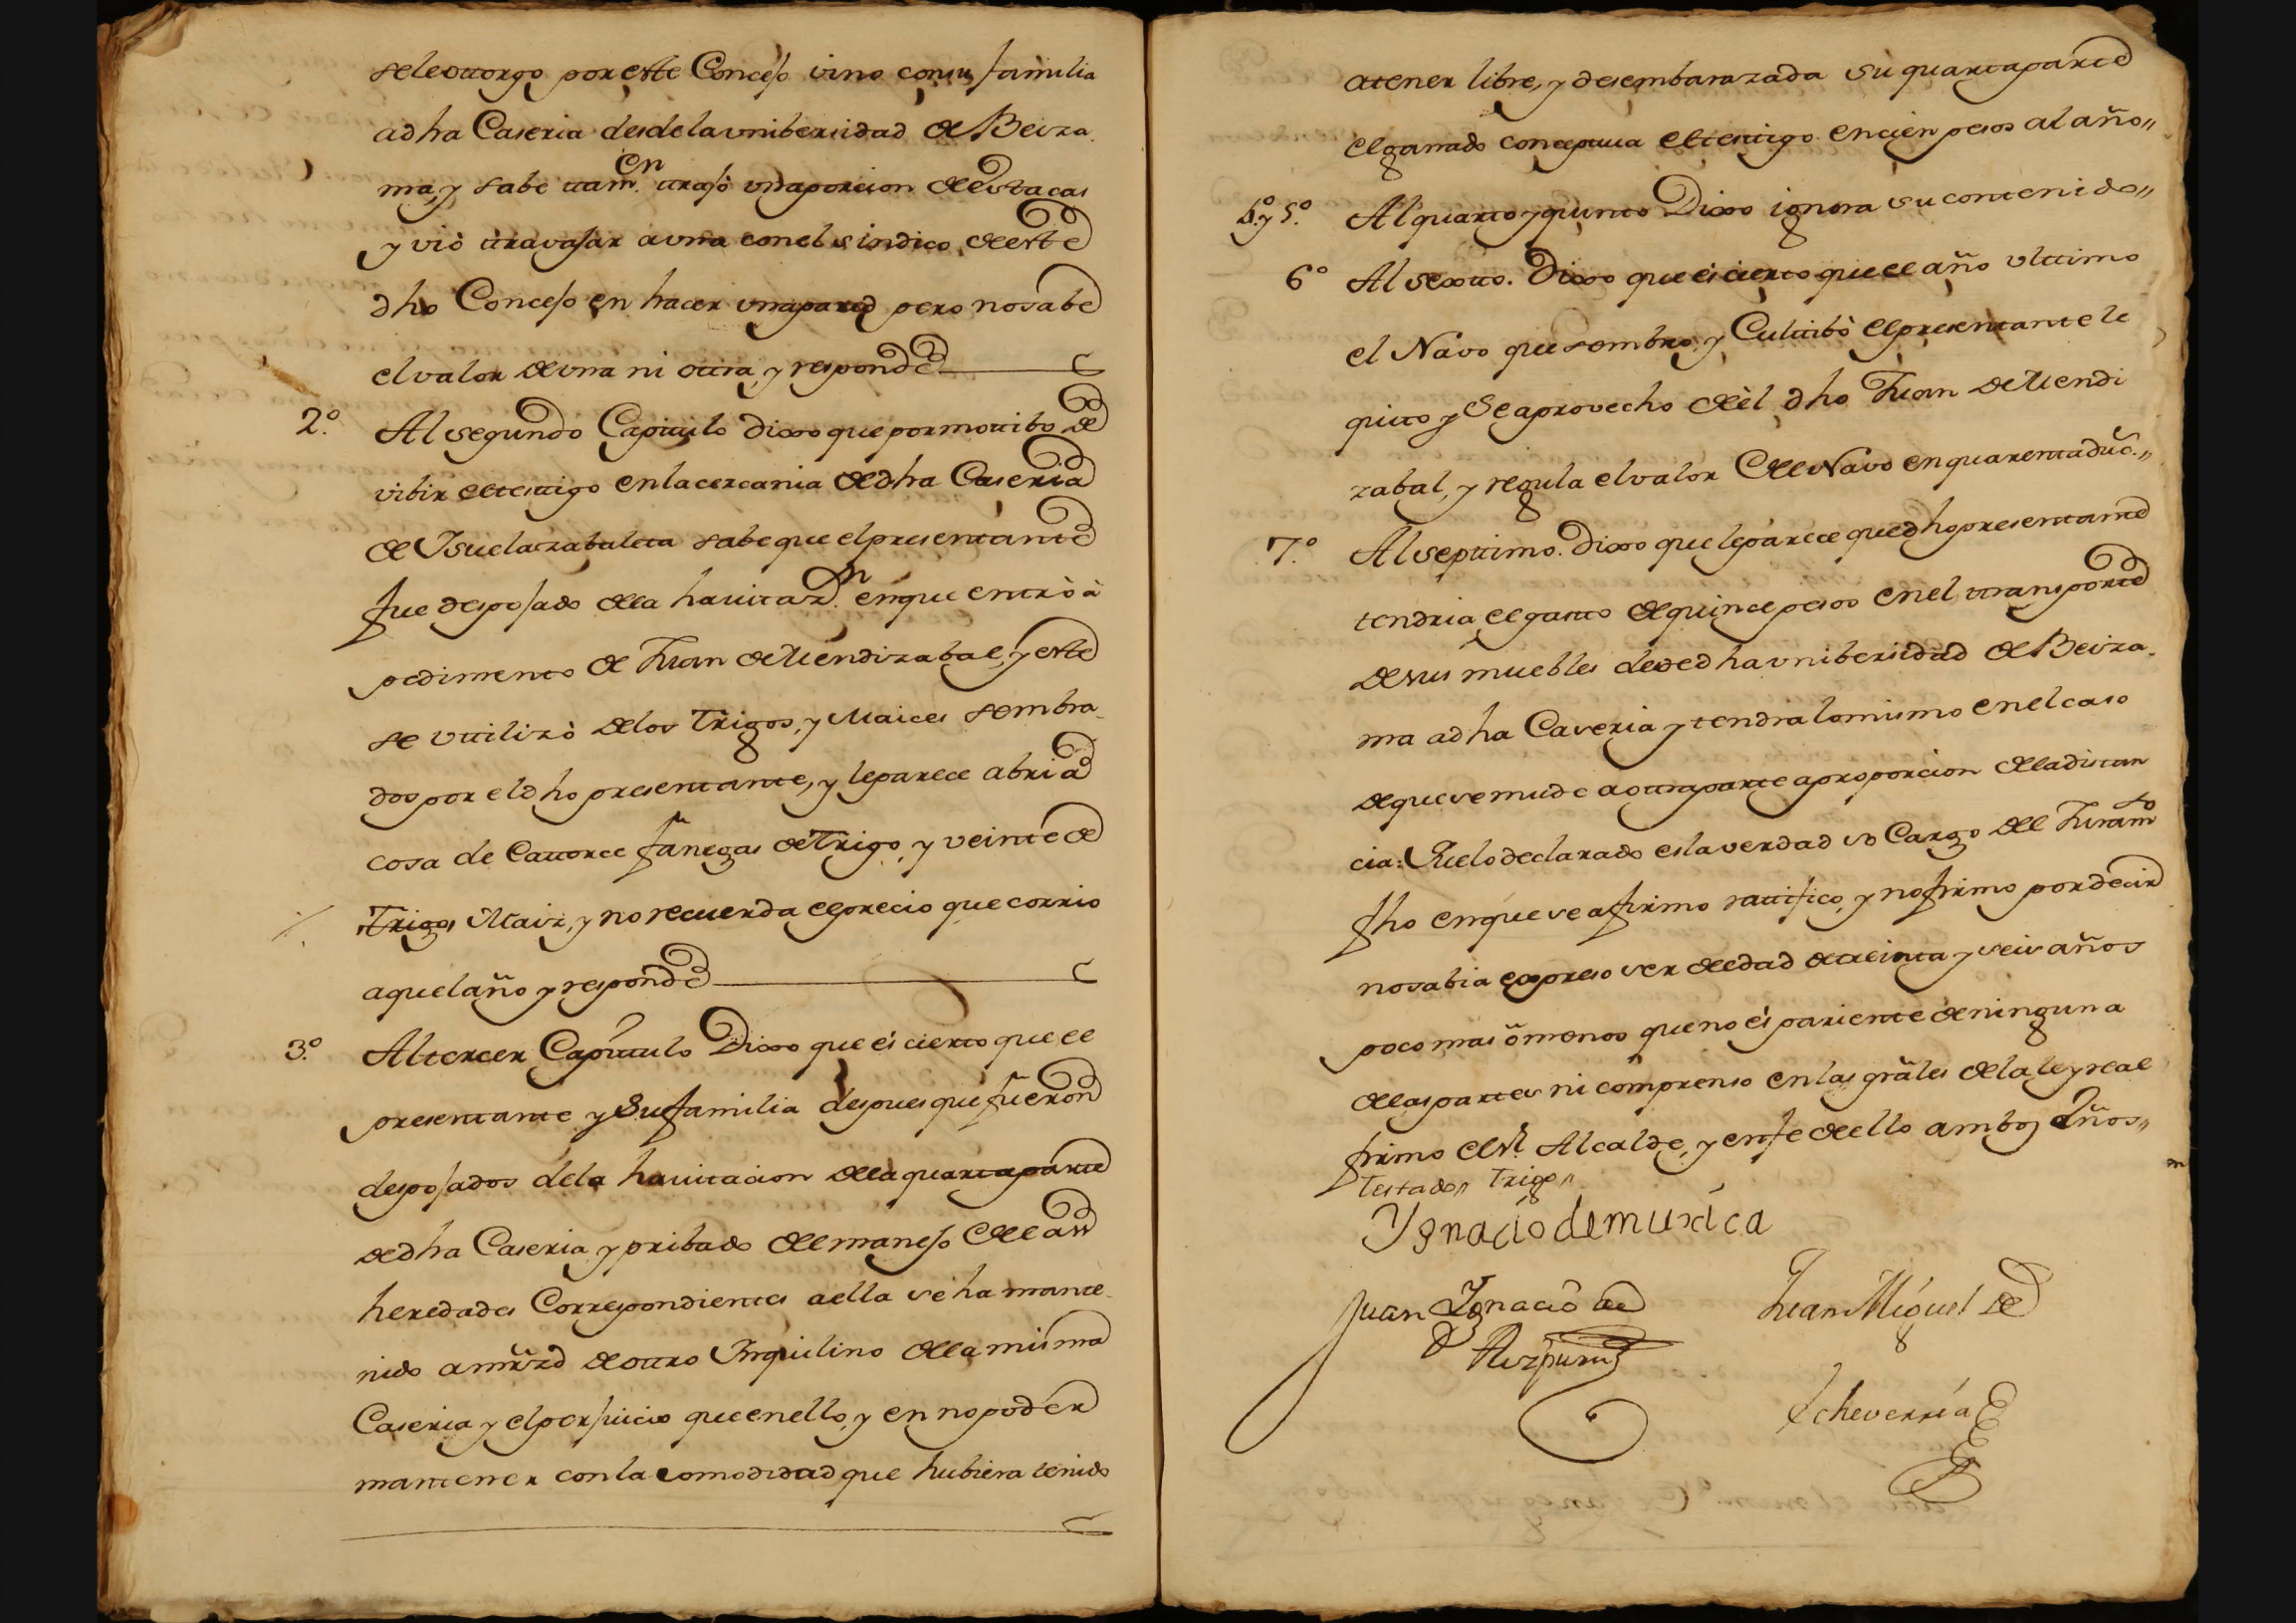 se le ottorgo por este Concejo vino con su familia
a dha Caseria desde la vnibersidad de Beiza
ma, y sabe ttamen. ttrajo vna porcion de estacas
y viò ttravajar a vna con el sindico de este
dho Concejo en hacer vna pared pero no sabe
el valor de vna ni ottra, y responde
2.º Al segundo Capittulo dixo que por mottibo de
vibir el testtigo en la cercania de dha Caseria
de Ysuelazabaleta sabe que el presentante
fue despojado de la havitazn. en que entrò à
pedimento de Juan de Mendizabal, y este
se vttilizò de los Trigos, y Maices sembra
dos por el dho presentante, y le parece abria
cosa de Cattorce fanegas de Trigo, y veinte de
Trigo, Maiz, y no recuerda el precio que corrio
aquel año y responde
3.º Al tercer Capittulo Dixo que es cierto que el
presentante y Su familia despues que fueron
despojados de la havitacion de la quarta parte
de dha Caseria y pribado del manejo de las
heredades Correspondientes a ella se ha mante
nido a mrzd de ottro Ynquilino de la misma
Caseria y el perjuicio que en ello, y en no poder
mantener con la comodidad que hubiera tenido
a tener libre, y desembarazada su quarta parte
el ganado conceptua el testtigo en cien pesos al año,,
4.º y 5.º Al quarto y quinto Dixo ignora su contenido,,
6º Al sextto. Dixo que es cierto que el año vlttimo
el Navo que sembro, y Culttibò el presentante le
quitto y Se aprovecho de èl dho Juan de Mendi
zabal, y regula el valor del Navo en quarenta duc.,,
7.º Al septtimo. Dixo que le parece que dho presentante
tendria el gasto de quince pesos en el ttransporte
de sus muebles desde dha vnibersidad de Beiza
ma a dha Caseria y tendra lo mismo en el caso
de que se mude a ottra parte a proporcion de la distan
cia: Que lo declarado es la verdad so Cargo del Juramto
fho en que se afirmo rattifico, y no firmo por decir
no sabia expreso ser de edad de treinta y seis años
poco mas ò menos que no es pariente de ninguna
de las partes ni comprenso en las grâles de la ley real
firmo el Sr. Alcalde, y en fe de ello ambos Eños,,
Testado,, Trigo,,
Ygnacio de muxica
Juan Ygnacio de
Juan Miguel de
Aizpuru
Echeverria